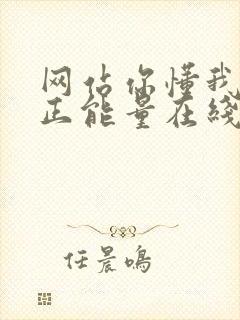 网站你懂我
正能量在线
任晨鸣